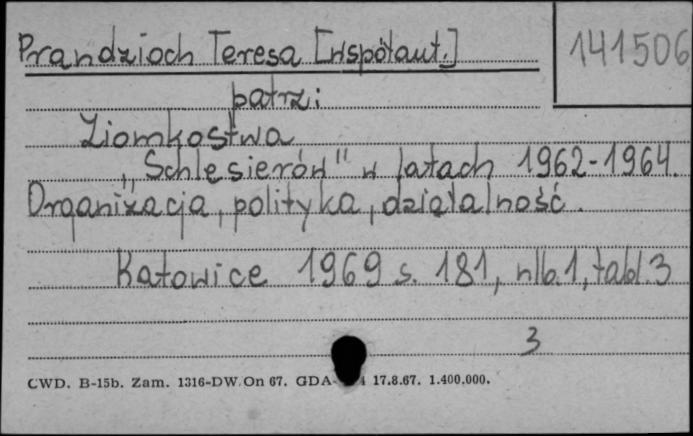 Prandzioch Teresa [współaut.]
141506
patrz:
Ziomkostwa
"Schlesierów" w latach 1962-1964.
Organizacja, polityka, działalność.
Katowice 1969 s. 181, nlb. 1, tabl 3
3
CWD. B-15b. Zam. 1316-DW. On 67. GDA- 17.8.67. 1.400.000.